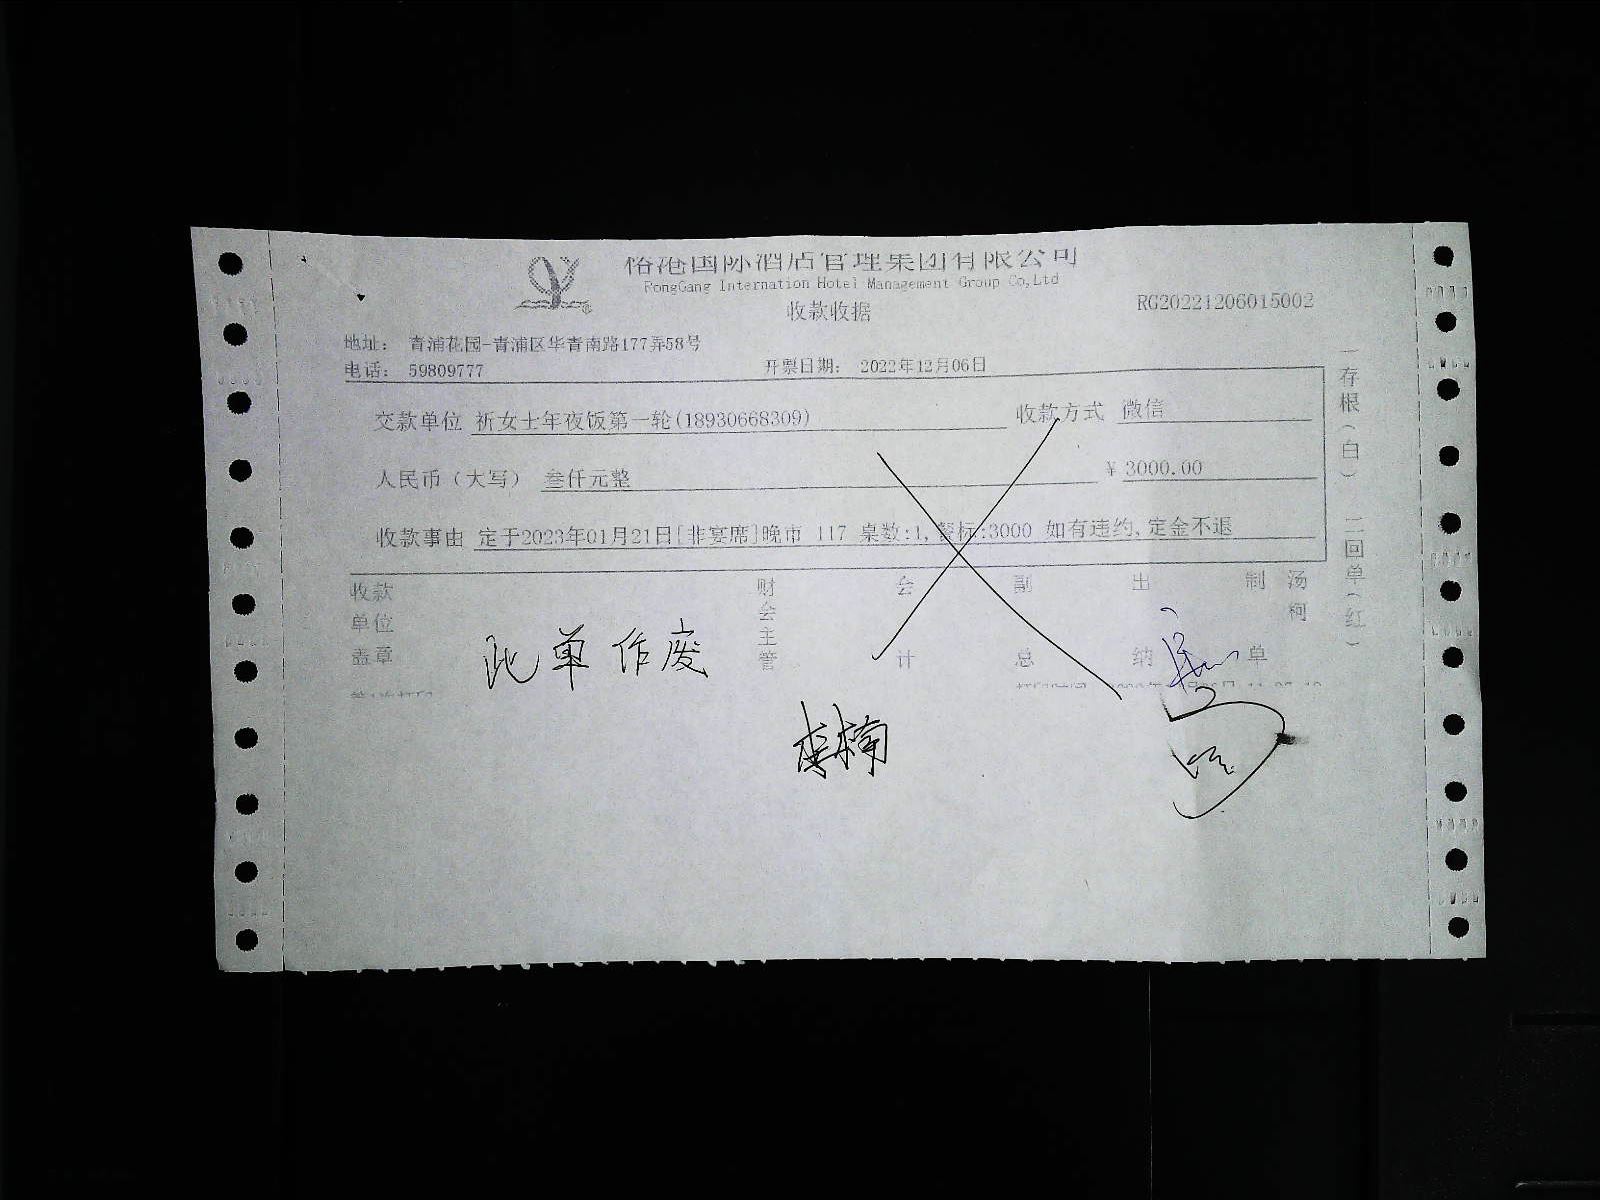 怡港国际酒店管理集团有限公司
RongGang Internation Hotel Management Group Co,Ltd
收款收据
RG20221206015002
地址： 青浦花园-青浦区华青南路177弄58号
电话： 59809777 开票日期： 2022年12月06日
交款单位 祈女士年夜饭第一轮(18930668309) 收款方式 微信
人民币（大写） 叁仟元整 ￥ 3000.00
收款事由 定于2023年01月21日[非宴席]晚市 117 桌数:1,餐标:3000 如有违约,定金不退
收款单位盖章 财会主管 会计 副总 出纳 制单 汤柯
一存根（白） 二回单（红）
此单作废
李楠